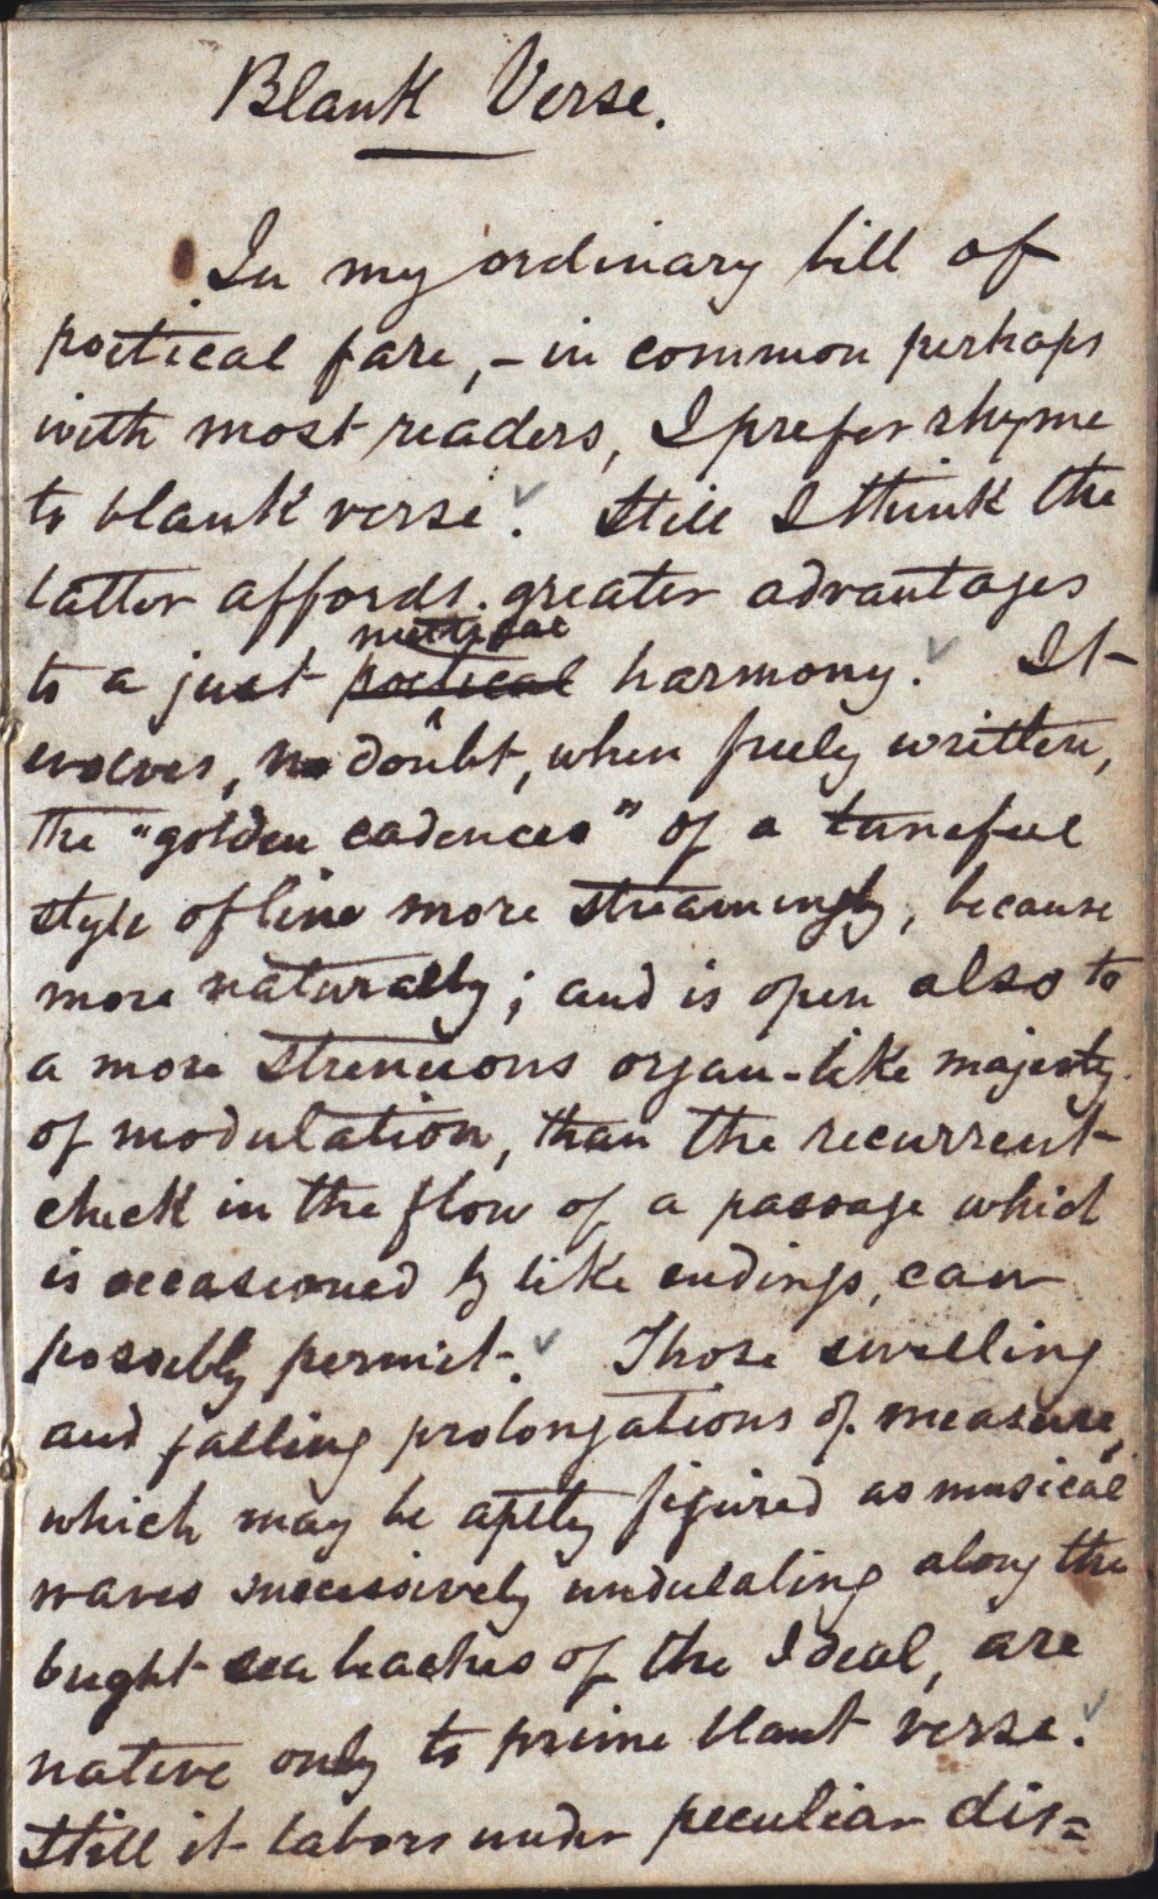 Blank Verse.
In my ordinary bill of
poetical fare, – in common perhaps
with most readers, I prefer rhyme
to blank verse. Still I think the
latter affords greater advantages
metrical
to a just poetical harmony. It
evolves, no doubt, when freely written,
the "golden cadences" of a tuneful
style of line more streamingly, because
more naturally; and is open also to
a more strenuous organ-like majesty
of modulation, than the recurrent
check in the flow of a passage which
is occasioned by like endings, can
possibly permit. Those swelling
and falling prolongations of measure,
which may be aptly figured as musical
waves successively undulating along the
bright sea beaches of the Ideal, are
native only to prime blank verse.
Still it labors under peculiar dis=